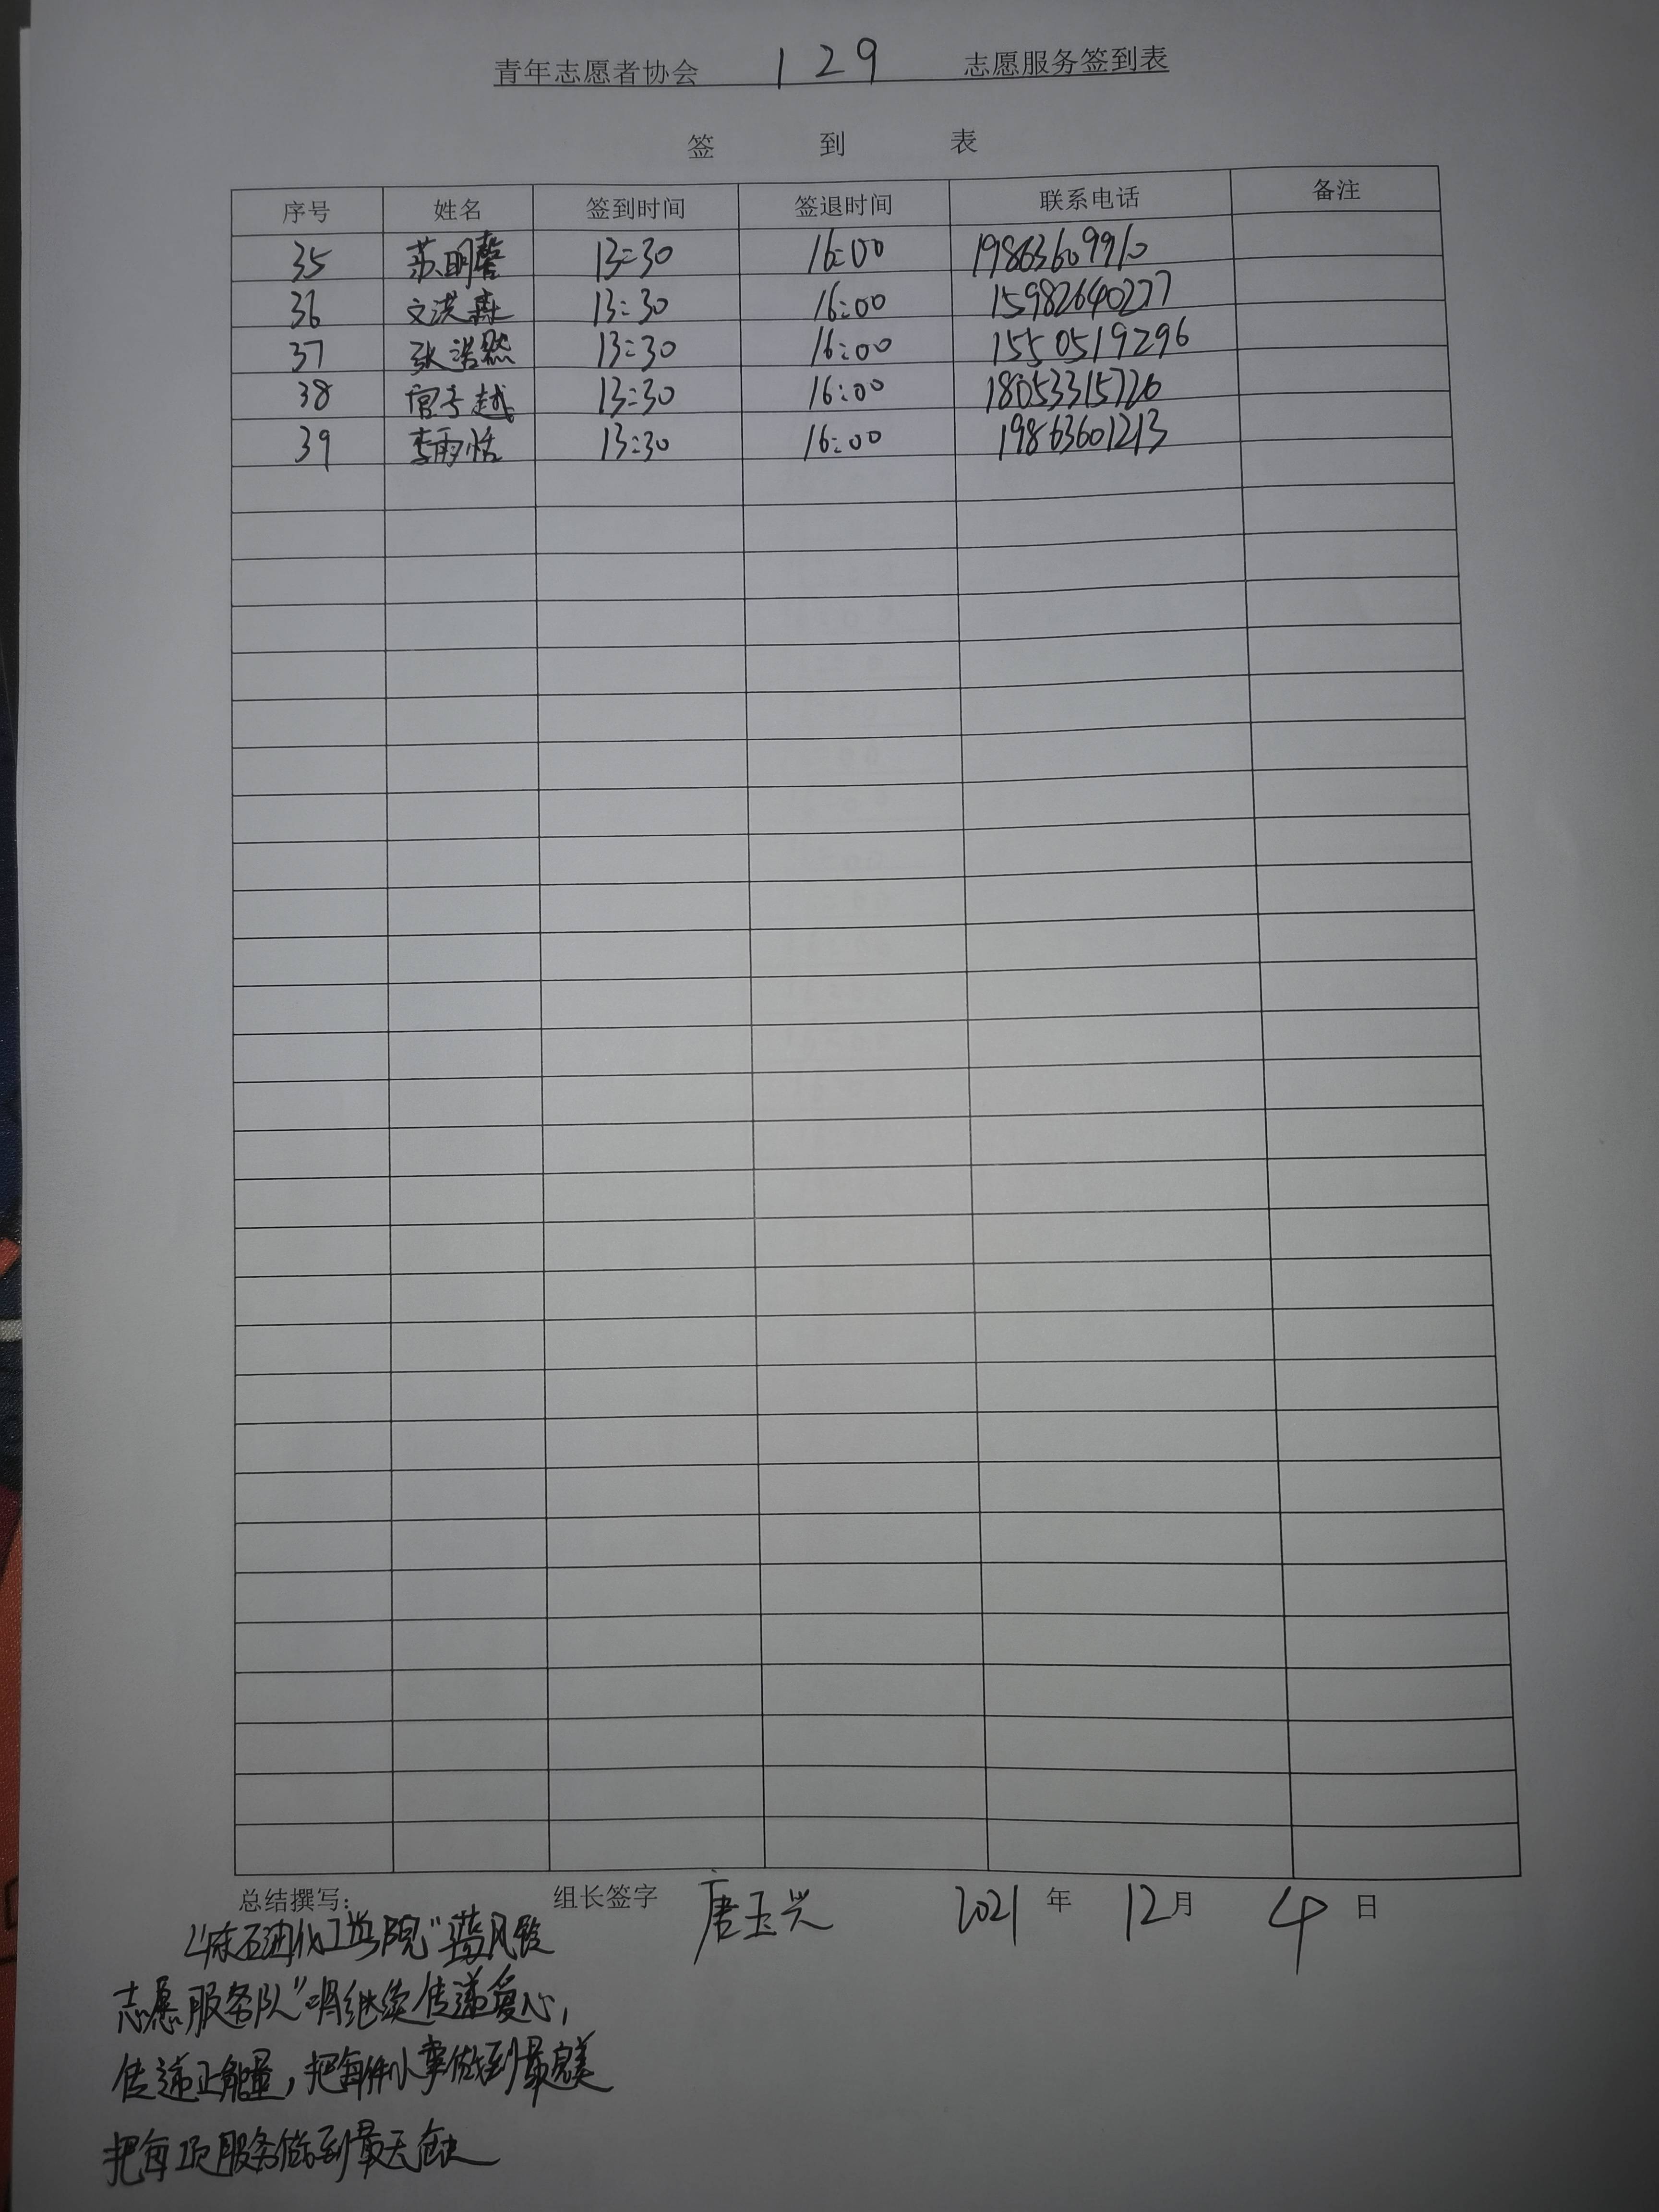 青年志愿者协会 129 志愿服务签到表
签 到 表
序号 姓名 签到时间 签退时间 联系电话 备注
35 苏明馨 13:30 16:00 19863609910
36 文洪森 13:30 16:00 15982640277
37 张浩然 13:30 16:00 1550519296
38 宫子越 13:30 16:00 18053315720
39 李雨恬 13:30 16:00 19863601213
总结撰写: 组长签字 唐玉兴 2021 年 12 月 4 日
石油化工学院“蓝风铃
志愿服务队”将继续传递爱心,
传递正能量,把每件小事做到最完美
把每项服务做到最无